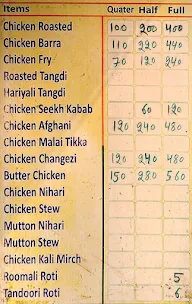 Items Quater Half Full
Chicken Roasted 100 200 400
Chicken Barra 110 220 440
Chicken Fry 70 120 240
Roasted Tangdi
Hariyali Tangdi
Chicken Seekh Kabab 60 120
Chicken Afghani 120 240 480
Chicken Malai Tikka
Chicken Changezi 120 240 480
Butter Chicken 150 280 560
Chicken Nihari
Chicken Stew
Mutton Nihari
Mutton Stew
Chicken Kali Mirch
Roomali Roti 5
Tandoori Roti 6